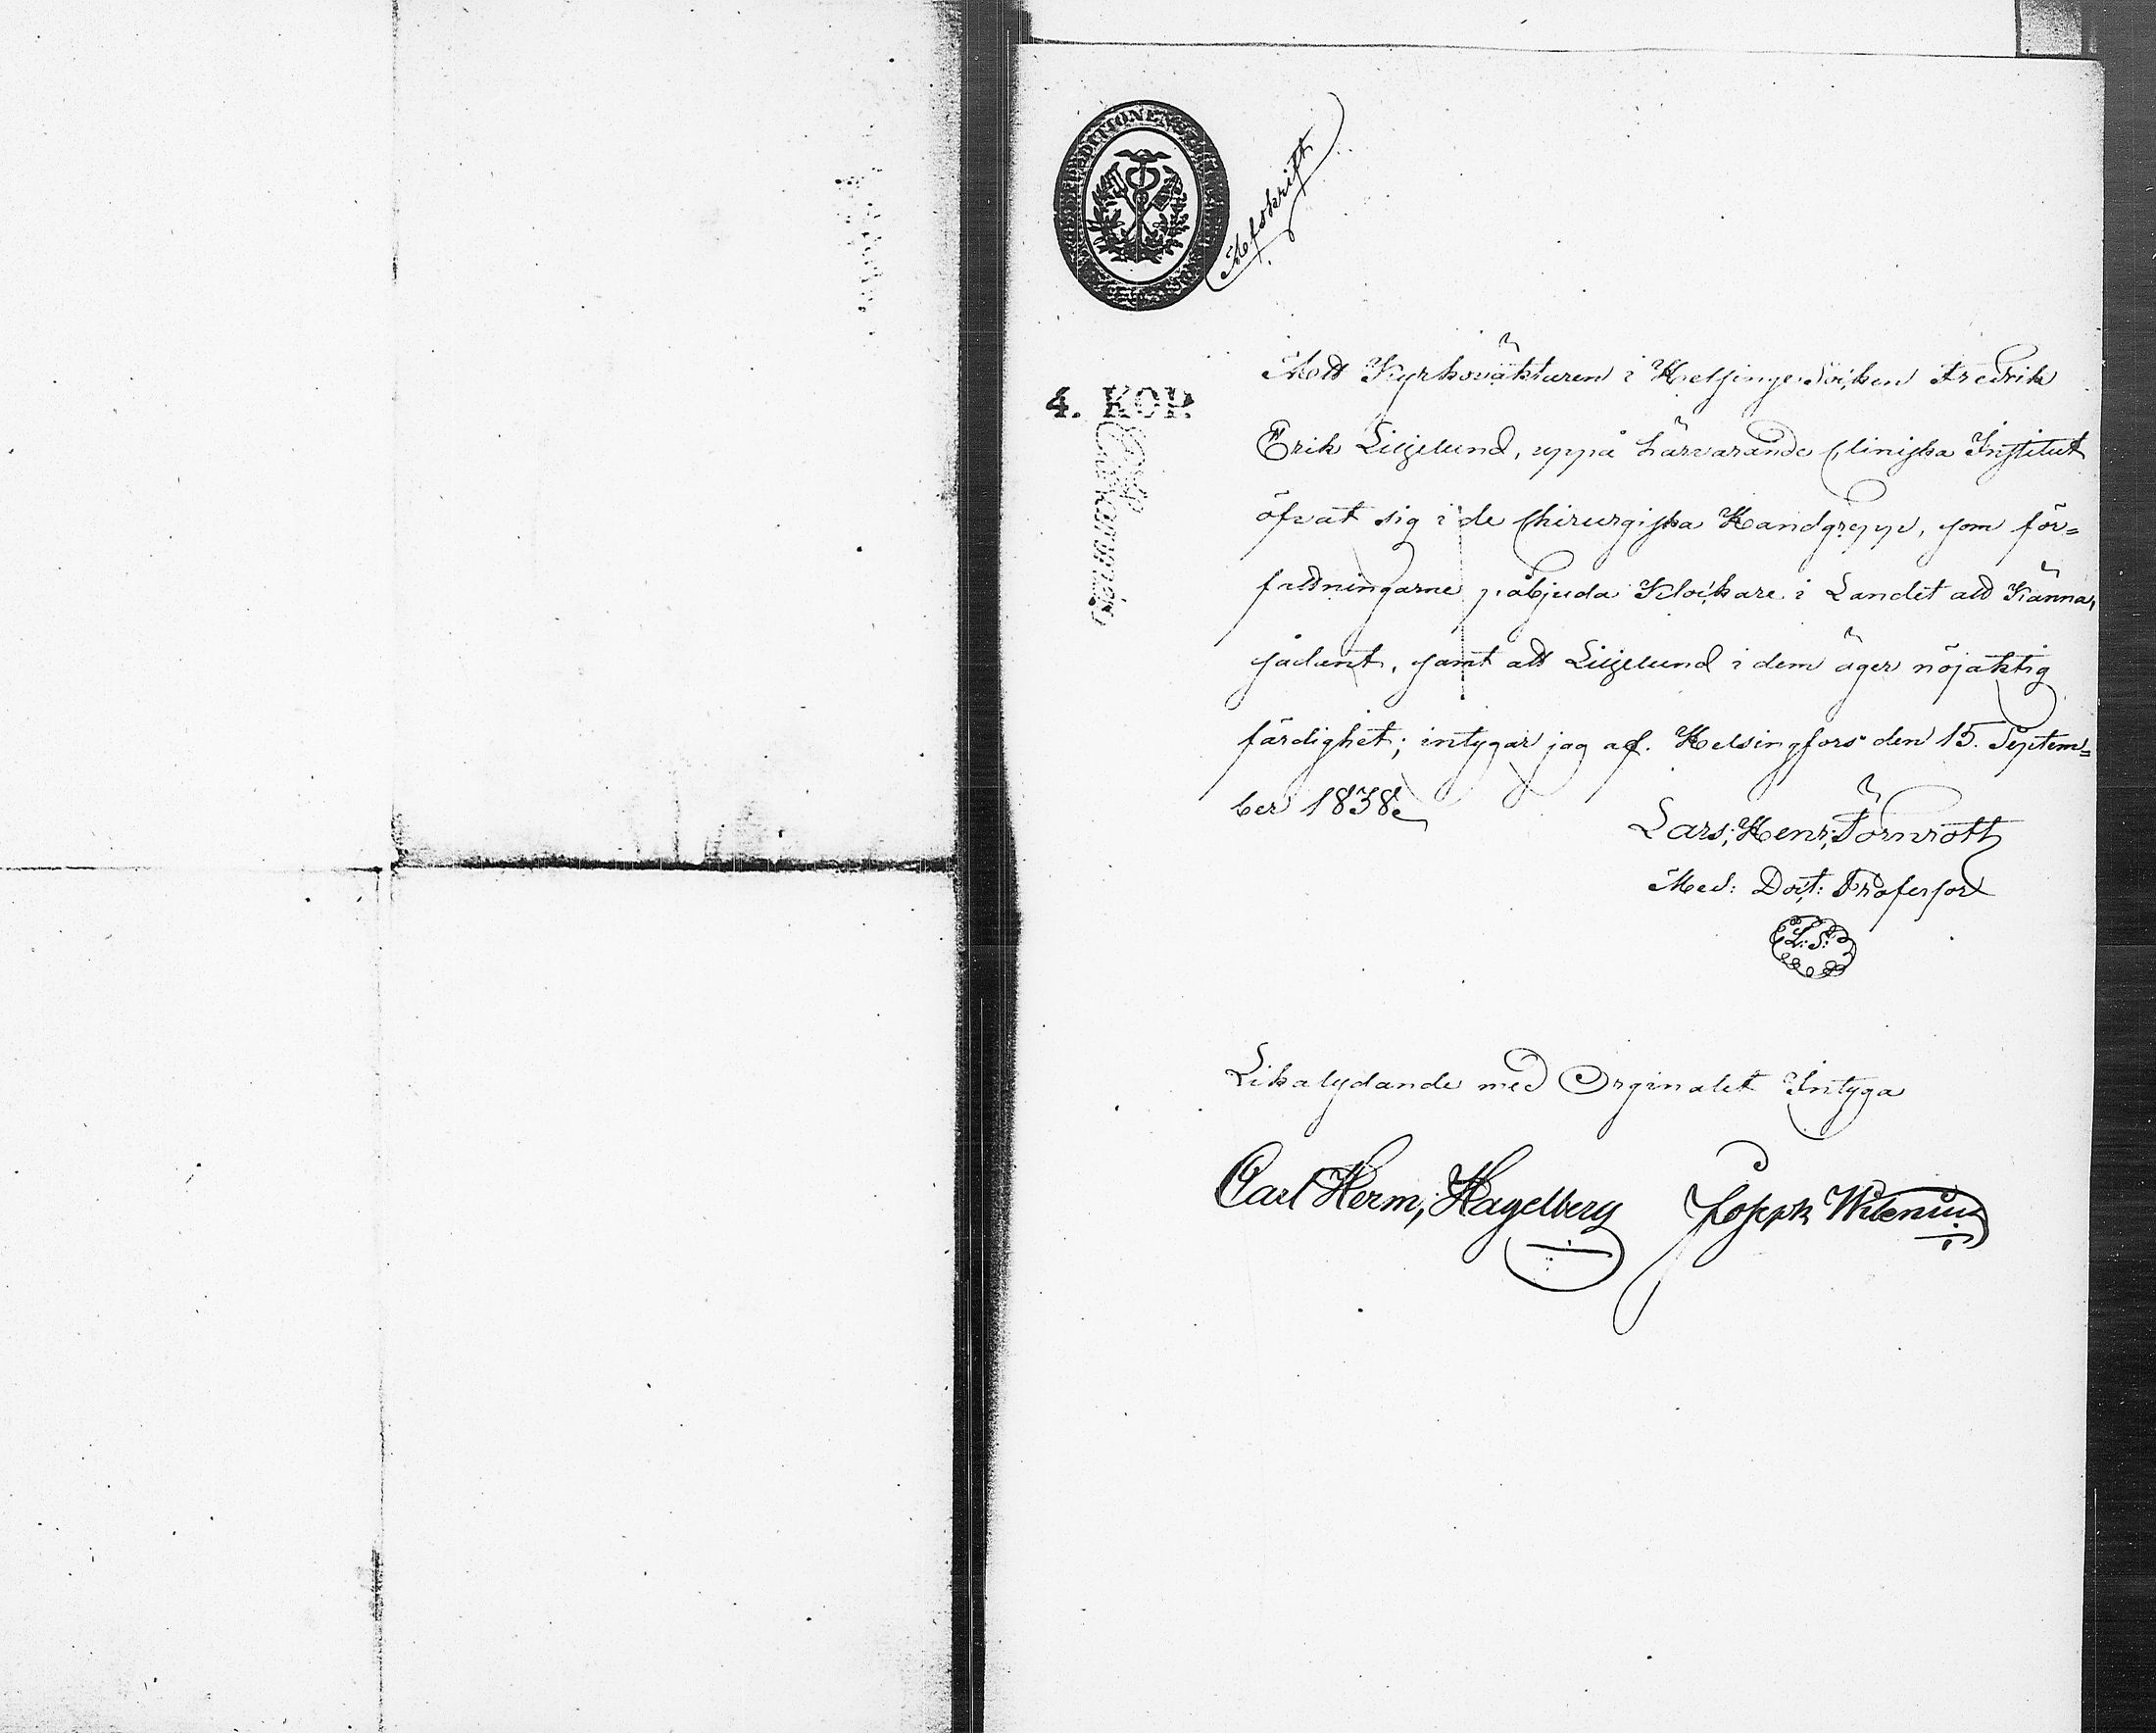 Afskrift
4. KOP.
Att Kyrkoväkturen i Helsinge Sócken Fredrik
Erik Liljelund, uppå härvarande Cliniska Institut
öfvat sig i de Chirurgiska Handgrepp, som för=
fattningarne påbjuda Klockare i Landet att Känna,
sådant, samt att Liljelund i dem äger nöjaktig
färdighet; intygar jag af. Helsingfors den 15. Septem=
ber 1838.
Lars; Henr; Törnroth
Med: Doct: Professor
L: S:
Likalydande med Orginalet Intyga
Carl Herm; Hagelberg Joseph Wilenius